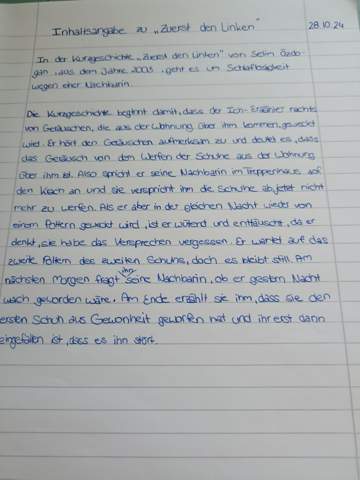 Inhaltsangabe zu „Zuerst den Linken"
28.10.24
In der Kurzgeschichte „Zuerst den Linken" von Selim Özdo-
gan, aus dem Jahre 2003, geht es um Schlaflosigkeit
wegen einer Nachbarin.
Die Kurzgeschichte beginnt damit, dass der Ich-Erzähler nachts
von Geräuschen, die aus der Wohnung über ihm kommen, geweckt
wird. Er hört den Geräuschen aufmerksam zu und deutet es, dass
das Geräusch von den Werfen der Schuhe aus der Wohnung
über ihm ist. Also spricht er seine Nachbarin im Treppenhaus auf
den Krach an und sie verspricht ihm die Schuhe ab jetzt nicht
mehr zu werfen. Als er aber in der gleichen Nacht wieder von
einem Poltern geweckt wird, ist er wütend und enttäuscht, da er
denkt, sie habe das Versprechen vergessen. Er wartet auf das
zweite Poltern des zweiten Schuhs, doch es bleibt still. Am
nächsten Morgen fragt ihn seine Nachbarin, ob er gestern Nacht
wach geworden wäre. Am Ende erzählt sie ihm, dass sie den
ersten Schuh aus Gewonheit geworfen hat und ihr erst dann
eingefallen ist, dass es ihn stört.